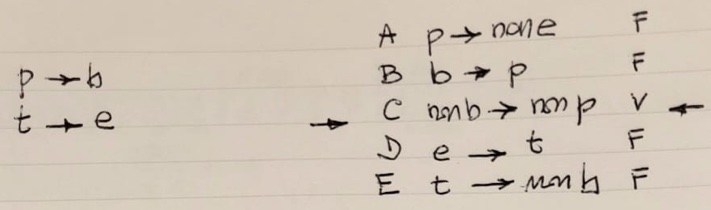 p → b
t → e
A p → non e F
B b → p F
→ C non b → non p V ←
D e → t F
E t → non b F